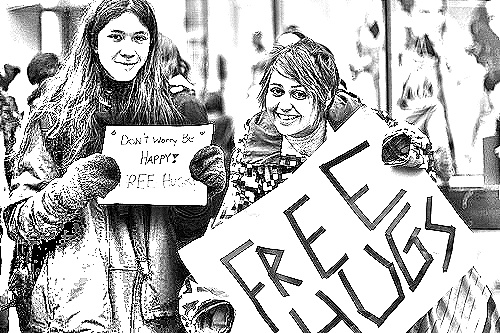 DON'T WORRY BE
HAPPY!
FREE HUGS
FREE
HUGS